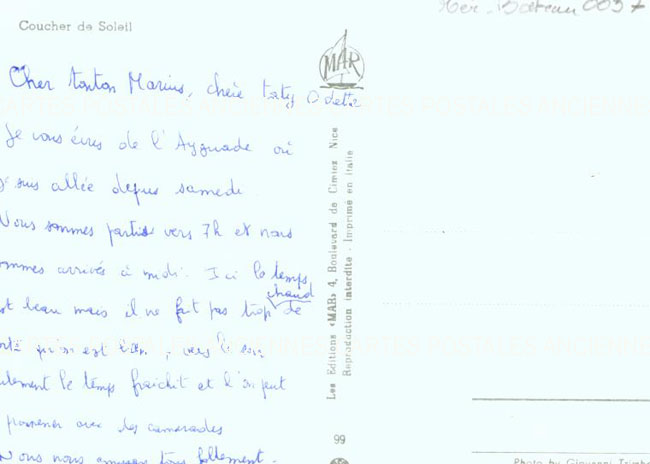 Mer - Bateau 0037
Coucher de Soleil
MAR
Cher tonton Marius, chère taty Odette
Je vous écris de l'Ayguade où
j suis allée depuis samedi.
Nous sommes partis vers 7h et nous
ommes arrivés à midi. Ici le temps
st beau mais il ne fait pas trop chaud de
qu'on est bien, vers le soir
ulement le temps fraîchit et l'on peut
promener avec des camarades
Nous nous amusons tous follement.
Les Editions «MAR» 4, Boulevard de Cimiez Nice
Reproduction interdite - Imprimé en Italie
99
Photo by Giovanni Trimb
CARTES POSTALES ANCIENNES
CARTES POSTALES ANCIENNES